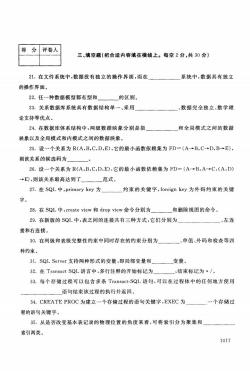 得 分 评卷人
三、填空题(把合适内容填在横线上。每空2分,共30分)
21. 在文件系统中,数据没有独立的操作界面,而在________系统中,数据具有独立
的操作界面。
22. 任一种数据模型都有型和________的区别。
23. 关系数据库系统具有数据结构单一、采用________、数据完全独立、数学理
论支持等优点。
24. 在数据库体系结构中,两级数据映象分别是指________和全局模式之间的数据
映象以及全局模式和内模式之间的数据映象。
25. 设一个关系为R(A,B,C,D,E),它的最小函数依赖集为FD={A→B,C→D,B→E},
则该关系的候选码为________。
26. 设一个关系为R(A,B,C,D,E),它的最小函数依赖集为FD={A→B,A→C,(A,D)
→E},则该关系最高达到了________范式。
27. 在SQL中,primary key为________约束的关键字,foreign key为外码约束的关键
字。
28. 在SQL中,create view和drop view命令分别为________和删除视图的命令。
29. 在新版的SQL中,表之间的连接共有三种方式,它们分别为________、左连
接和右连接。
30. 在列级和表级完整性约束中同时存在的约束分别为________、单值、外码和检查等四
种约束。
31. SQL Server支持两种形式的变量,即局部变量和________变量。
32. 在Transact-SQL语言中,多行注释的开始标记为________,结束标记为*/。
33. 每个存储过程可以包含多条Transact-SQL语句,可以在过程体中的任何地方使用
________语句结束该过程的执行并返回。
34. CREATE PROC为建立一个存储过程的语句关键字,EXEC为________一个存储过
程的语句关键字。
35. 从是否改变基本表记录的物理位置的角度来看,可将索引分为聚集和________
索引两类。
1017